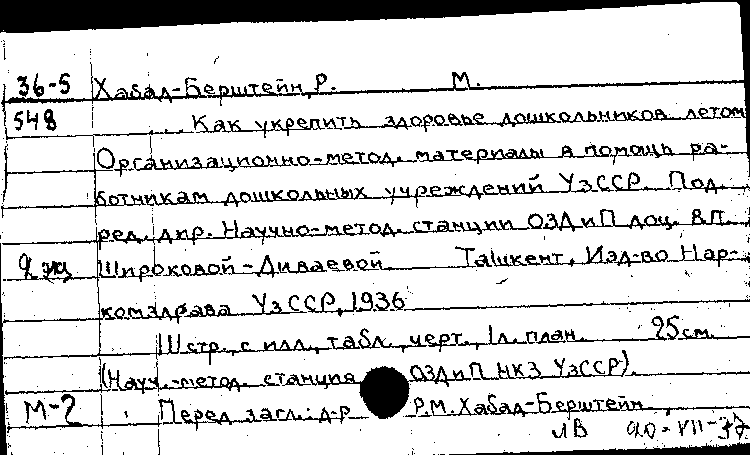 36-5 Хабад-Берштейн, Р. М.
548 ... Как укрепить здоровье дошкольников летом
Организационно-метод. материалы в помощь ра-
ботникам дошкольных учреждений УзССР. Под.
ред. дир. Научно-метод. станции ОЗДиП доц. В.П.
2 экз Широковой-Диваевой Ташкент, Изд-во Нар-
комздрава УзССР, 1936
111 стр., с илл., табл., черт., 1 л. план. 25 см.
(Науч.-метод. станция ОЗДиП НКЗ УзССР).
М-2 Перед загл.: д-р Р.М. Хабад-Берштейн
ЛВ 20-VII-37